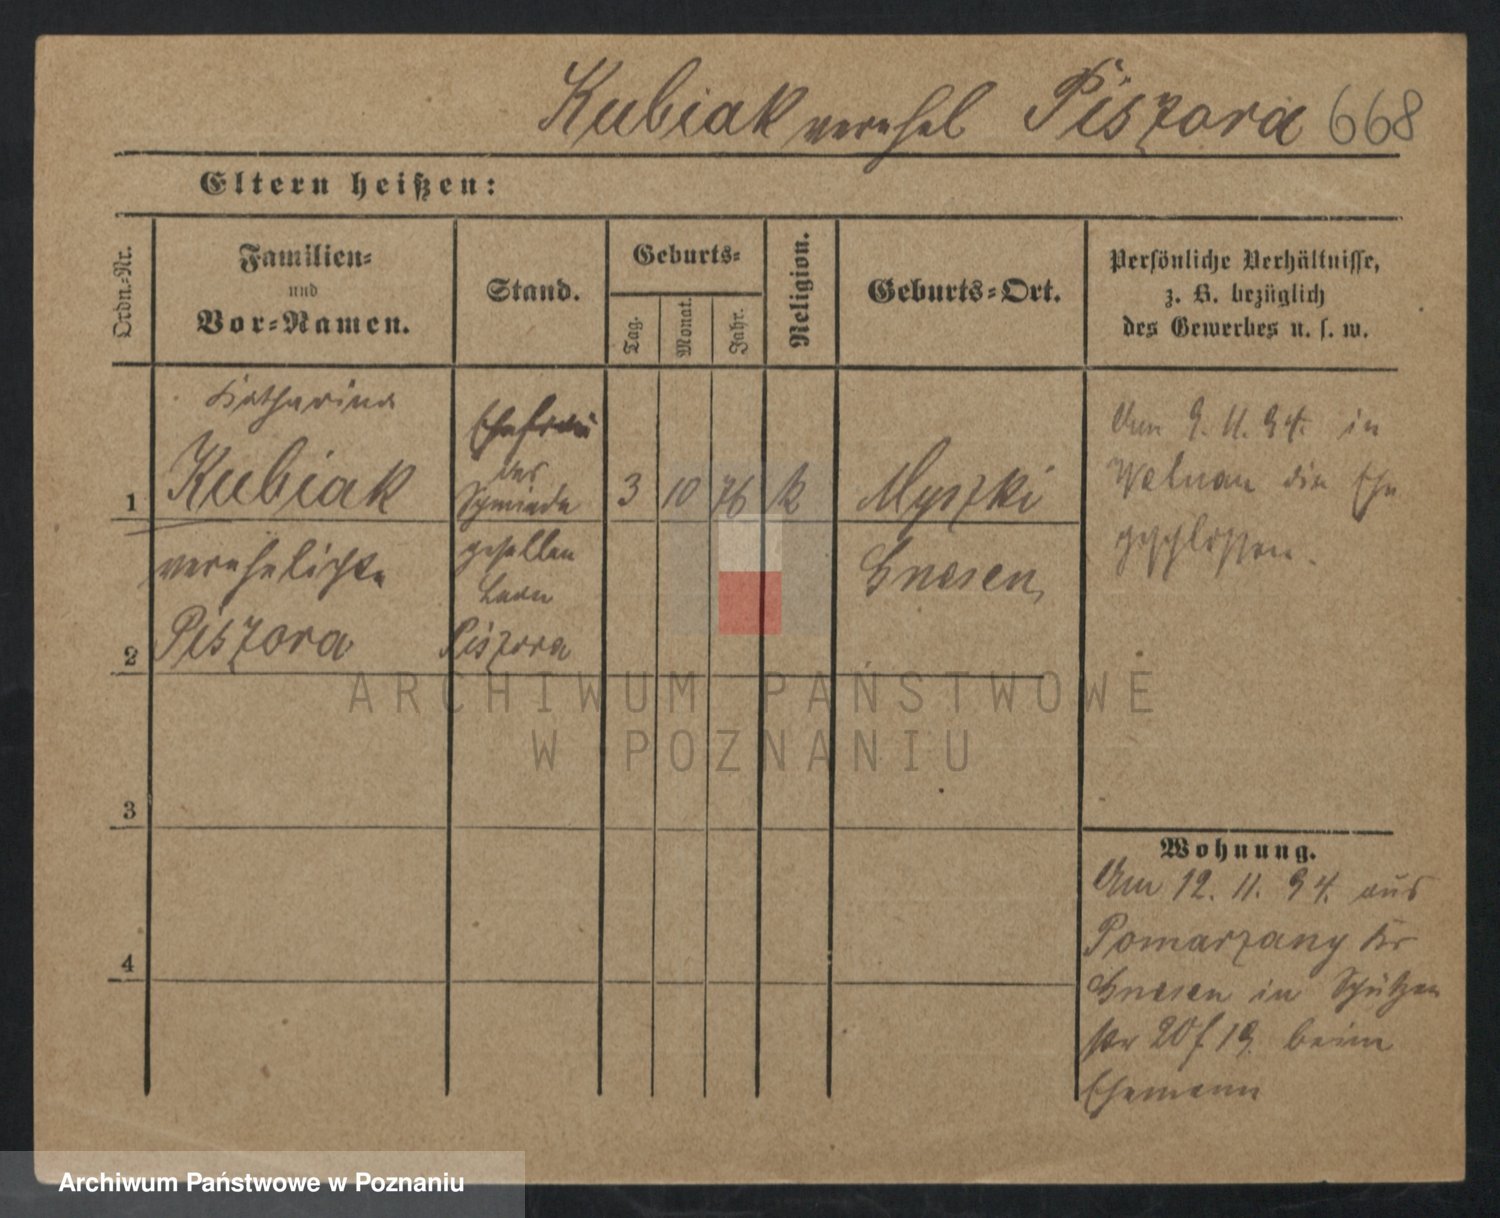 Kubiak verehel Piszora 668
Eltern heißen:
Ordn.-Nr.
Familien-
und
Vor-Namen.
Stand.
Geburts-
Tag.
Monat.
Jahr.
Religion.
Geburts-Ort.
Persönliche Verhältnisse,
z. B. bezüglich
des Gewerbes u. s. w.
1
Katharina
Kubiak
verehelichte
2
Piszora
Ehefrau
des
Schmiede
gesellen
Piszora
3
10
76
k
Myszki
Gnesen,
Am 9. 11. 94. in
Welnau die Ehe
geschlossen.
3
4
Wohnung.
Am 12. 11. 94. aus
Pomarzany Kr
Gnesen in Schützen
str 20 f 19. beim
Ehemann
ARCHIWUM PAŃSTWOWE
W POZNANIU
Archiwum Państwowe w Poznaniu